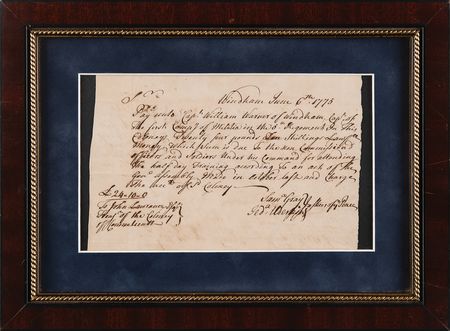 Windham June 6th 1775
Sr
Pay unto Capt William Warner of Windham Capt of
the first Compy of Militia in the 5th Regement in this
Colony Twenty four pounds Ten Shillings Lawful
Money which sum is Due to the non Commissiond
officers and Soldiers under his Command for attending
the half day Training according to an act of the
Genl Assembly Made in October last and Charge
the
Colony
£ 24-10-0
To John Lawrance Esqr
of the Colony
of Connecticutt
Saml Gray